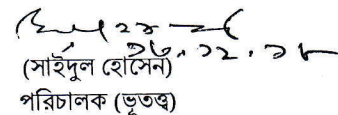 ১৬.১২.১৮
(সাইদুল হোসেন)
পরিচালক (ভূতত্ত্ব)